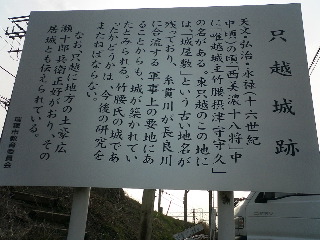 只越城跡
天文・弘治・永禄(十六世紀
中頃)の頃「西美濃十八将」中
に「唯越城主竹腰摂津守守久」
の名がある。東只越のこの地に
は「城屋敷」という古い地名が
残っており、糸貫川が長良川
に合流する軍事上の要地にあ
ることからも、城が築かれてい
たとみられる。竹腰氏の城であ
ったかどうかは、今後の研究を
またねばならない。
なお、只越に地方の土豪広
瀬十郎兵衛正好がおり、その
居城とも伝えられている。
瑞穂市教育委員会